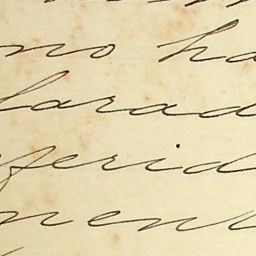 no ha
larad
ferid
ment